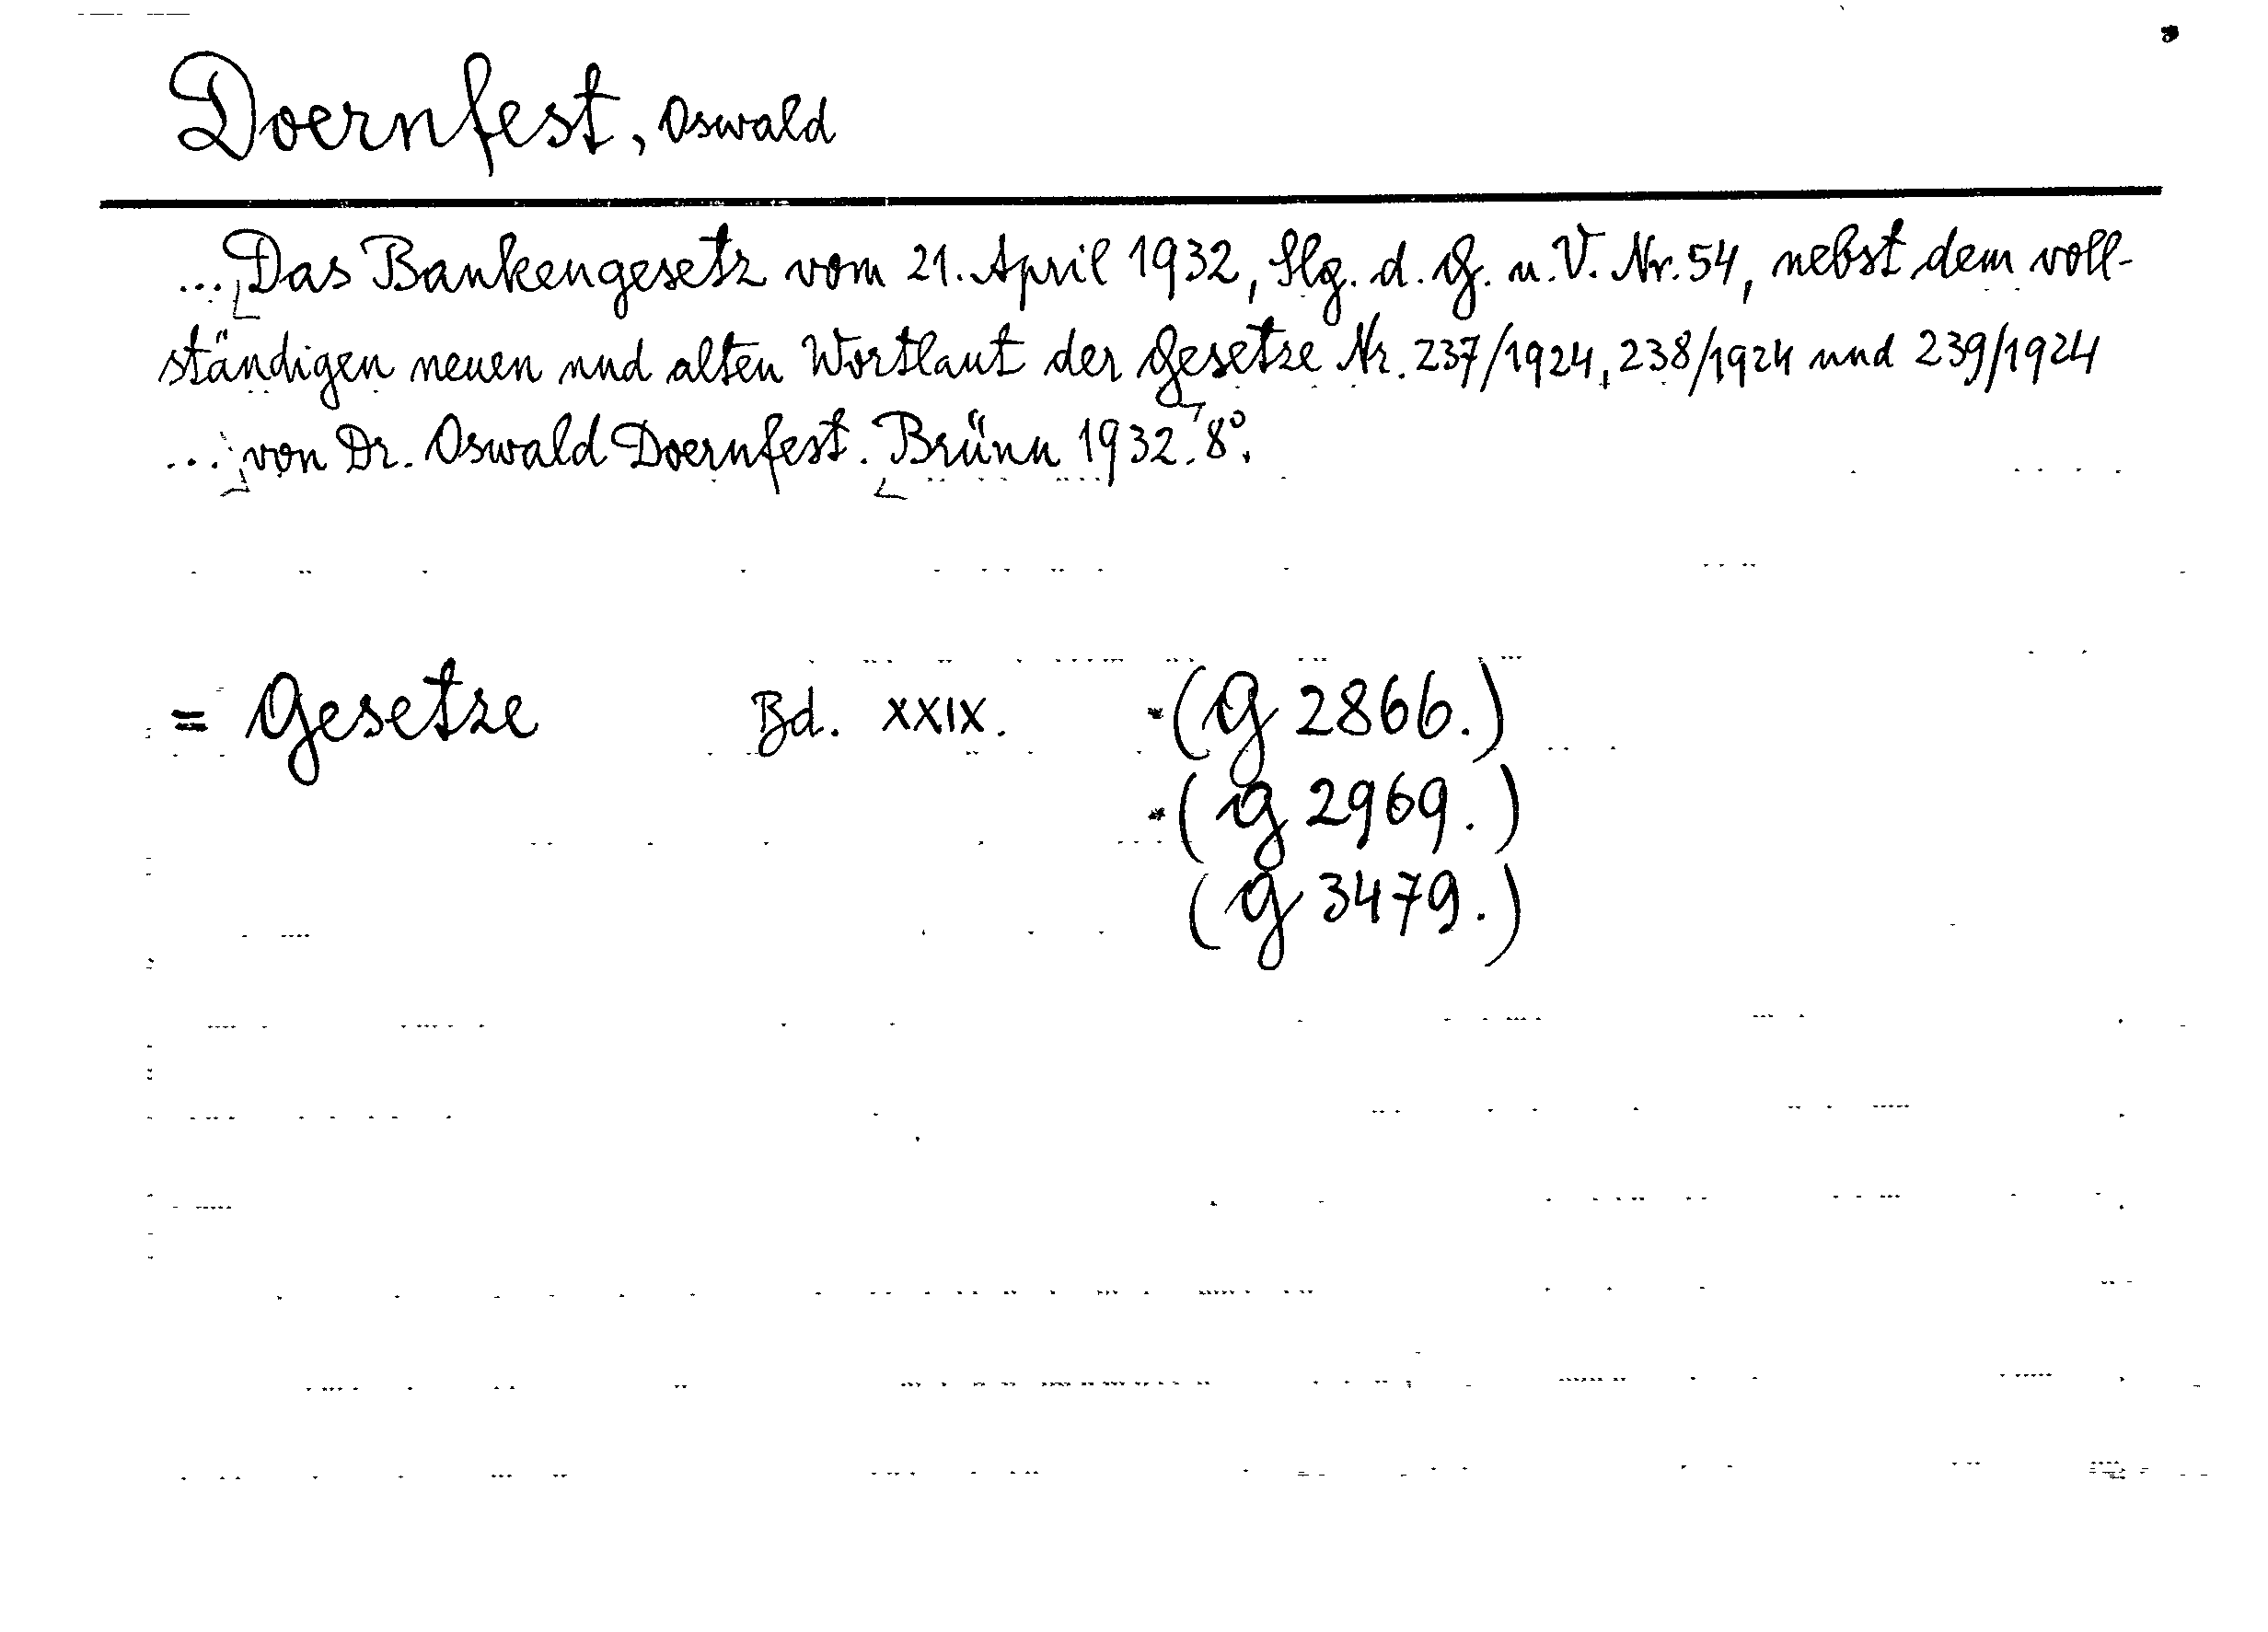 Doernfest, Oswald
... Das Bankengesetz vom 21. April 1932, Slg. d. G. u. V. Nr. 54, nebst dem voll-
ständigen neuen und alten Wortlaut der Gesetze Nr. 237/1924, 238/1924 und 239/1924
... von Dr. Oswald Doernfest. Brünn 1932. 8°.
= Gesetze Bd. XXIX. (G 2866.)
(G 2969.)
(G 3479.)